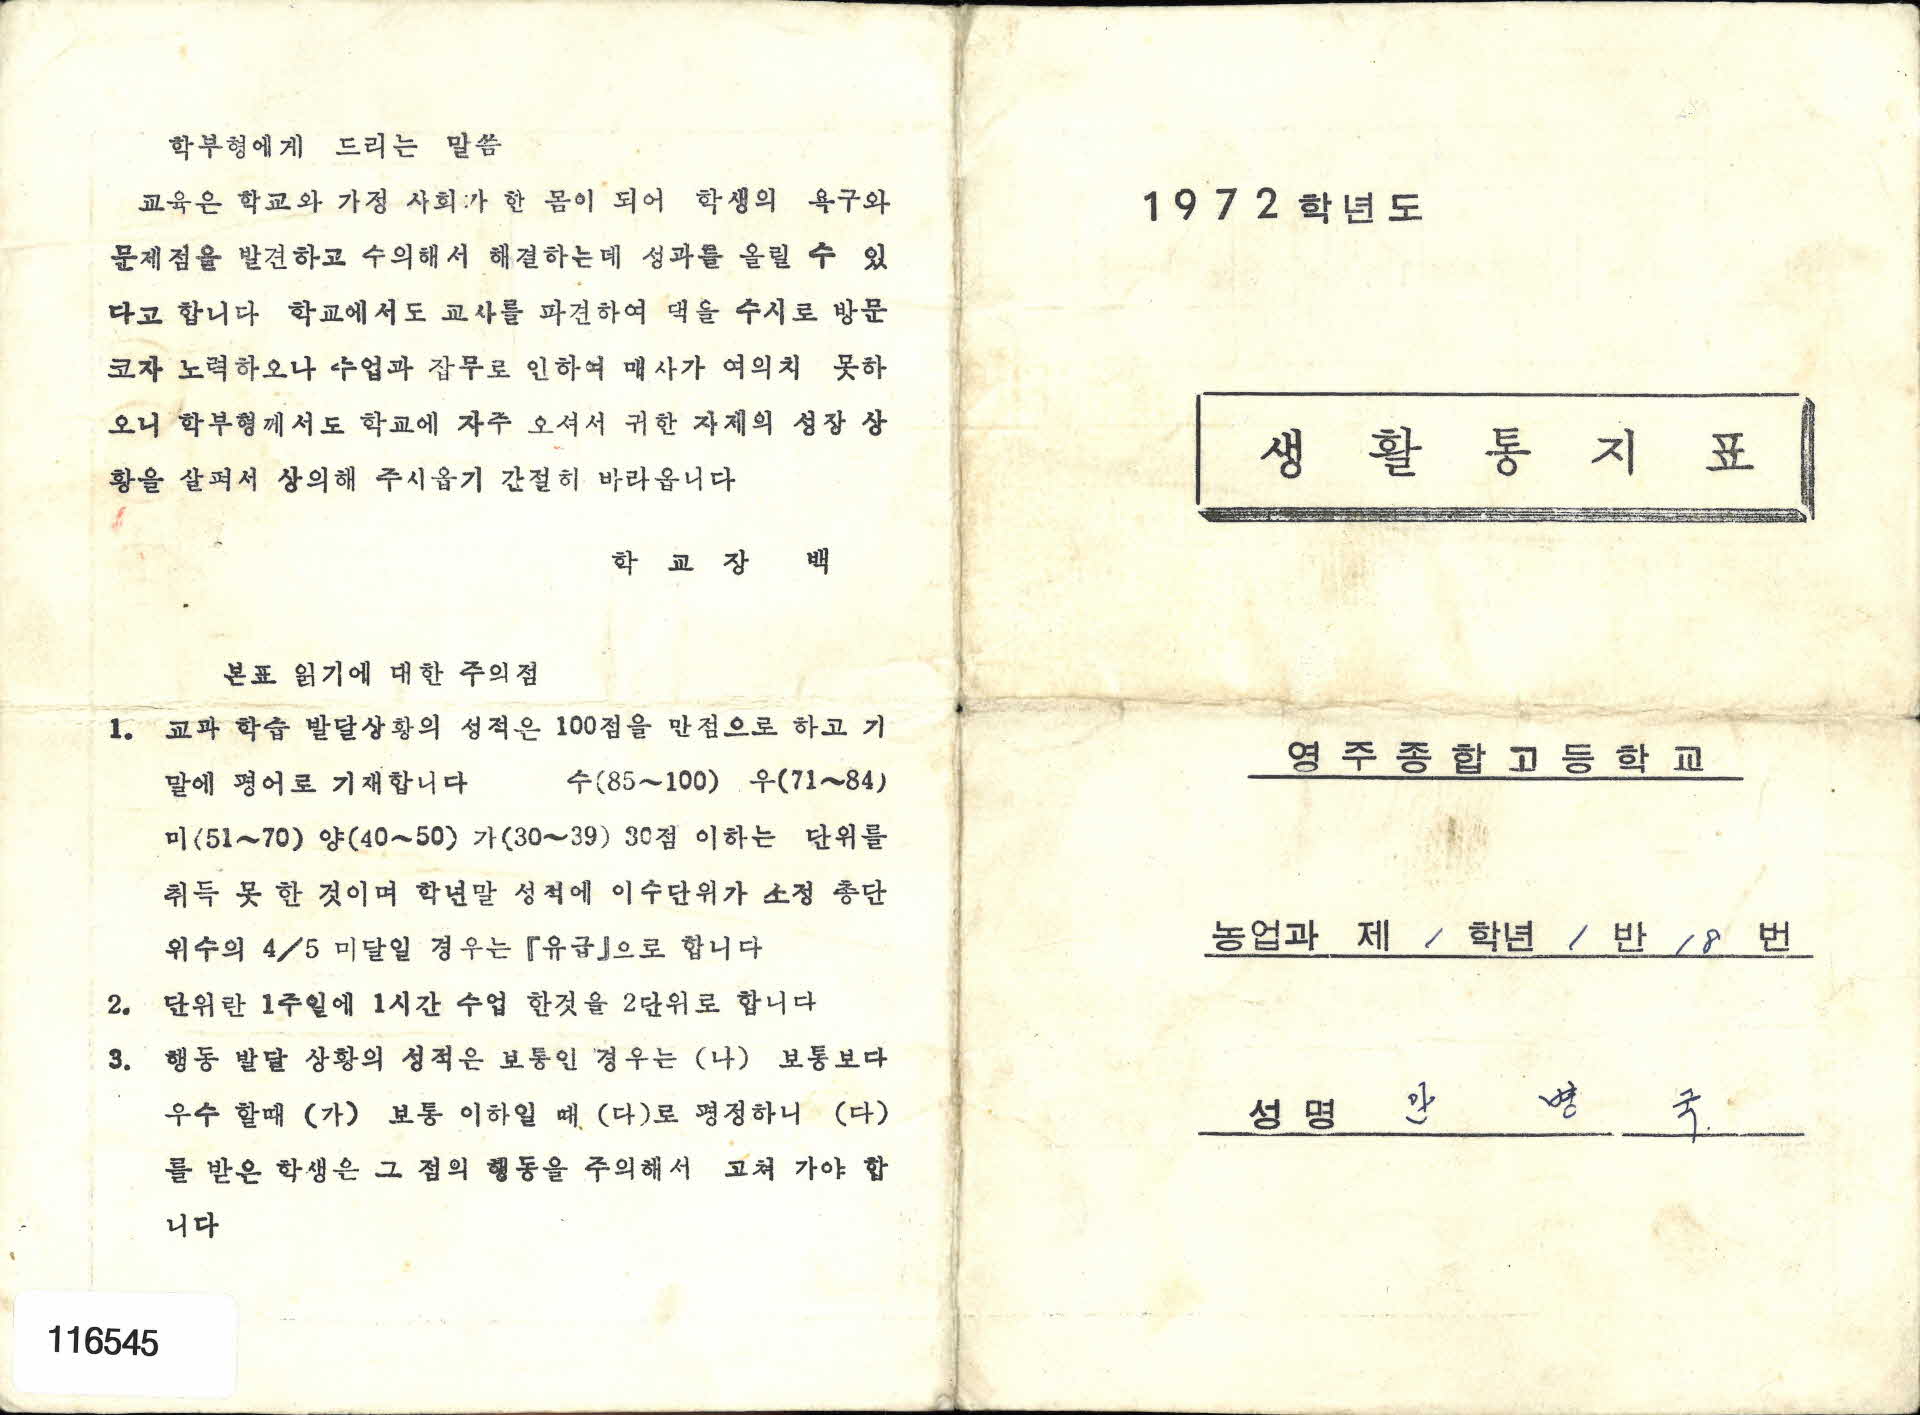 학부형에게 드리는 말씀
교육은 학교와 가정 사회가 한 몸이 되어 학생의 욕구와
문제점을 발견하고 수의해서 해결하는데 성과를 올릴 수 있
다고 합니다 학교에서도 교사를 파견하여 댁을 수시로 방문
코자 노력하오나 수업과 잡무로 인하여 매사가 여의치 못하
오니 학부형께서도 학교에 자주 오셔서 귀한 자제의 성장 상
황을 살펴서 상의해 주시옵기 간절히 바라옵니다
학 교 장 백
본표 읽기에 대한 주의점
1. 교과 학습 발달상황의 성적은 100점을 만점으로 하고 기
말에 평어로 기재합니다 수(85~100) 우(71~84)
미(51~70) 양(40~50) 가(30~39) 30점 이하는 단위를
취득 못 한 것이며 학년말 성적에 이수단위가 소정 총단
위수의 4/5 미달일 경우는 『유급』으로 합니다
2. 단위란 1주일에 1시간 수업 한것을 2단위로 합니다
3. 행동 발달 상황의 성적은 보통인 경우는 (나) 보통보다
우수 할때 (가) 보통 이하일 때 (다)로 평정하니 (다)
를 받은 학생은 그 점의 행동을 주의해서 고쳐 가야 합
니다
116545
1972학년도
생 활 통 지 표
영주종합고등학교
농업과 제 1 학년 1 반 18 번
성명 간 병 국